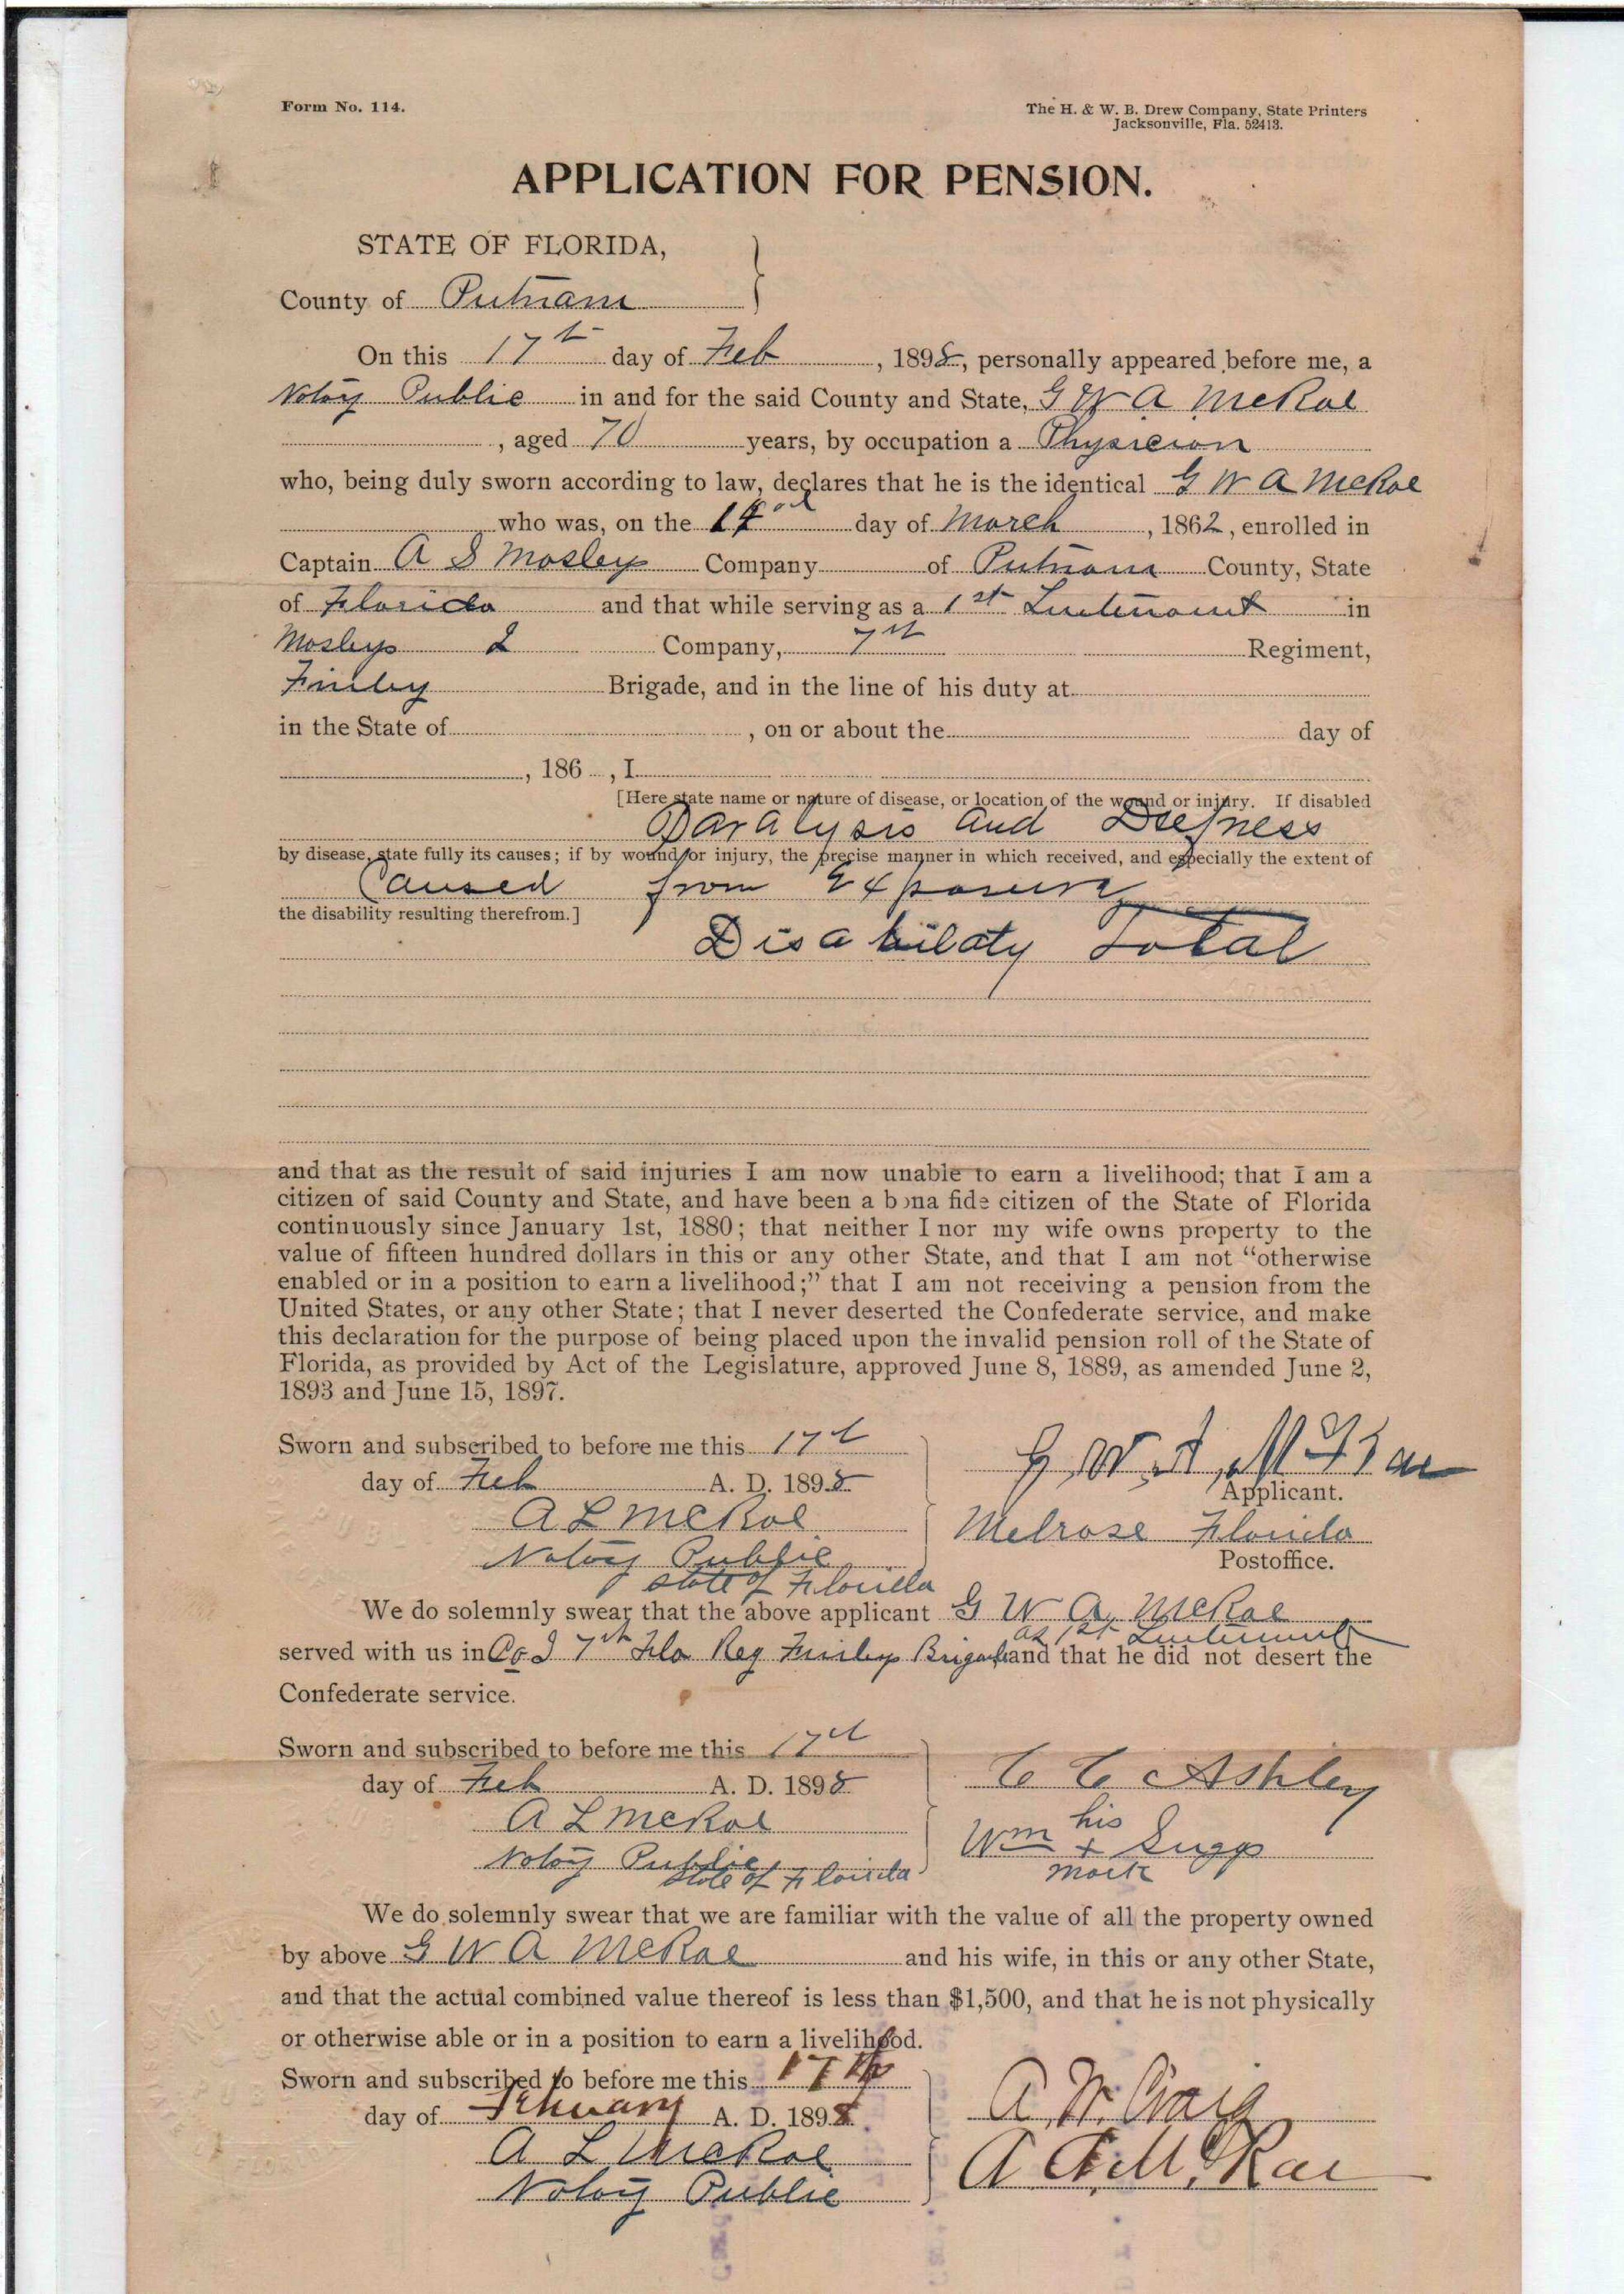 Form No. 114.
The H. & W. B. Drew Company, State Printers
Jacksonville, Fla. 52413.
APPLICATION FOR PENSION.
STATE OF FLORIDA,
County of Putnam
On this 17th day of Feb, 1898, personally appeared before me, a
Notary Public in and for the said County and State, G W A McRae
, aged 70 years, by occupation a Physician
who, being duly sworn according to law, declares that he is the identical G W A McRae
who was, on the day of March, 1862, enrolled in
Captain A S Mosley Company of Putnam County, State
of Florida and that while serving as a 1st Lieutenant in
Mosleys I Company, 7th Regiment,
Finley Brigade, and in the line of his duty at
in the State of , on or about the day of
, 186 , I
[Here state name or nature of disease, or location of the wound or injury. If disabled
Paralysis and Deefness
by disease, state fully its causes; if by wound or injury, the precise manner in which received, and especially the extent of
Caused from Exposure
the disability resulting therefrom.]
Disabilaty Total
and that as the result of said injuries I am now unable to earn a livelihood; that I am a
citizen of said County and State, and have been a bona fide citizen of the State of Florida
continuously since January 1st, 1880; that neither I nor my wife owns property to the
value of fifteen hundred dollars in this or any other State, and that I am not "otherwise
enabled or in a position to earn a livelihood;" that I am not receiving a pension from the
United States, or any other State; that I never deserted the Confederate service, and make
this declaration for the purpose of being placed upon the invalid pension roll of the State of
Florida, as provided by Act of the Legislature, approved June 8, 1889, as amended June 2,
1893 and June 15, 1897.
Sworn and subscribed to before me this 17th
day of Feb A. D. 1898
G. W. A. McRae
Applicant.
A L McRae
Melrose Florida
Notary Public
Postoffice.
State of Florida
We do solemnly swear that the above applicant G W A McRae
as 1st Lieutenant
served with us in Co I 7th Fla Reg Finley Brigade and that he did not desert the
Confederate service.
Sworn and subscribed to before me this 17th
day of Feb A. D. 1898
C C Ashley
A L McRae
his
Wm + Sugg
mark
Notary Public
State of Florida
We do solemnly swear that we are familiar with the value of all the property owned
by above G W A McRae and his wife, in this or any other State,
and that the actual combined value thereof is less than $1,500, and that he is not physically
or otherwise able or in a position to earn a livelihood.
Sworn and subscribed to before me this 17th
day of February A. D. 1898
A. W. Craig
A L McRae
A. A. McRae
Notary Public